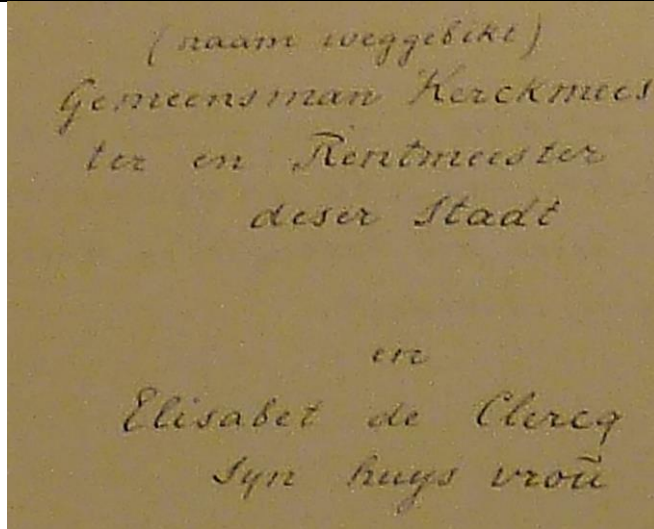 (naam weggebikt)
Gemeensman Kerckmees
ter en Rentmeester
deser Stadt
en
Elisabet de Clercq
Syn huys vroū